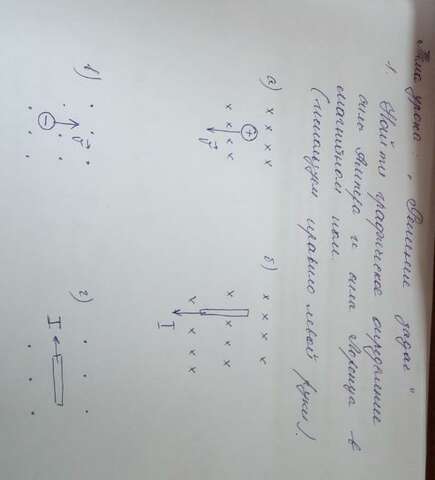 Тема урока: „Решение задач“
1. Найти графическое определение
сила Ампера и сила Лоренца в
магнитном поле.
(используем правило левой руки).
а) б)
+
v⃗ I
в) г)
− v⃗ I